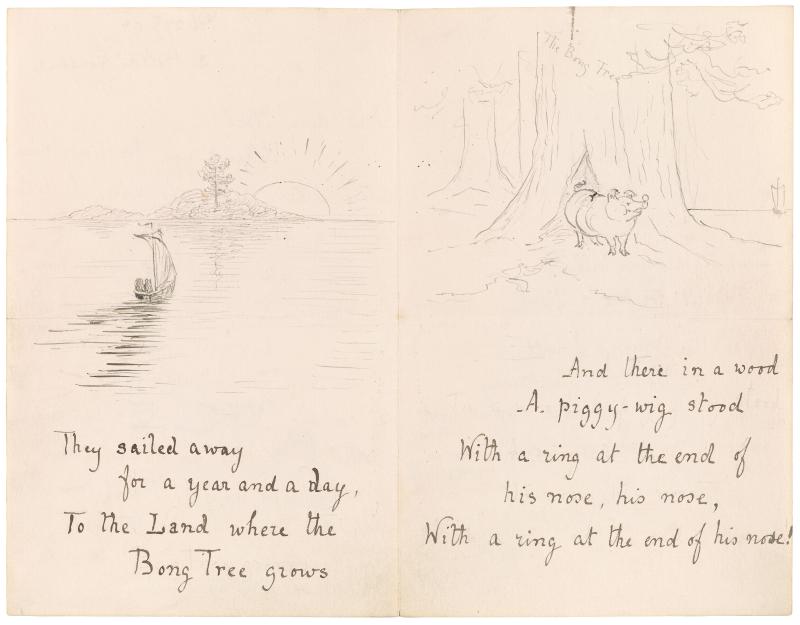 They sailed away
for a year and a day,
To the Land where the
Bong Tree grows
The Bong Tree
And there in a wood
A piggy-wig stood
With a ring at the end of
his nose, his nose,
With a ring at the end of his nose!